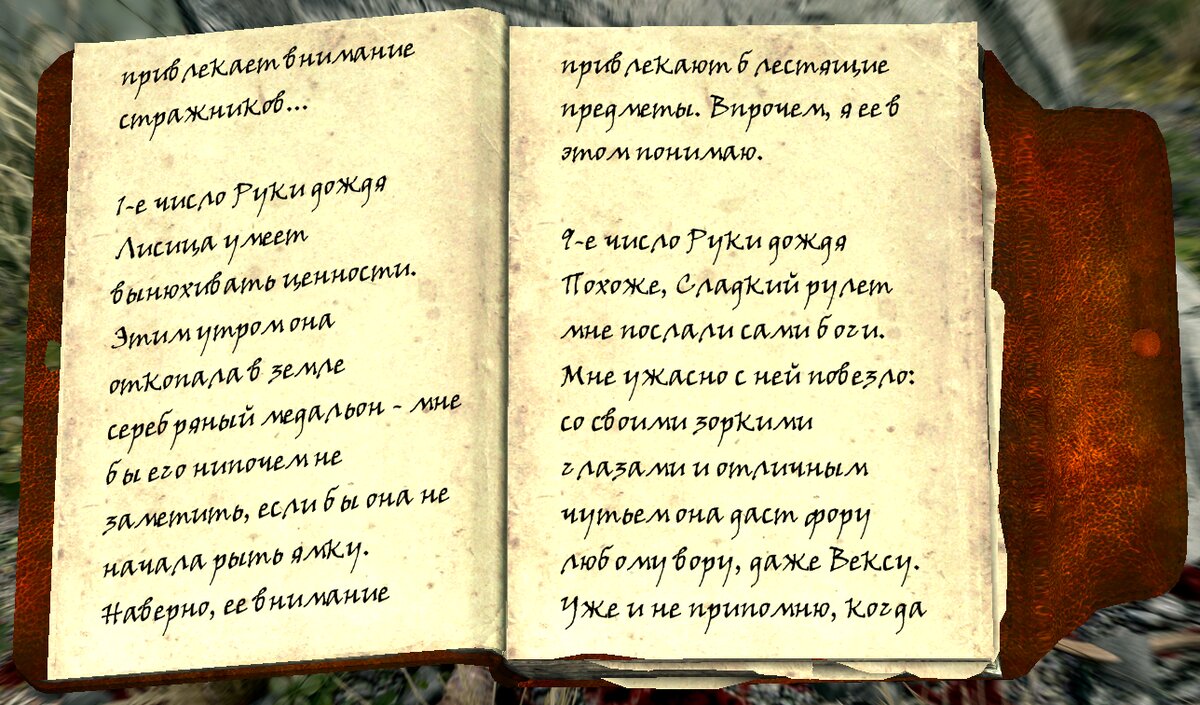 привлекает внимание
стражников...
1-е число Руки дождя
Лисица умеет
вынюхивать ценности.
Этим утром она
откопала в земле
серебряный медальон - мне
бы его нипочем не
заметить, если бы она не
начала рыть ямку.
Наверно, ее внимание
привлекают блестящие
предметы. Впрочем, я ее в
этом понимаю.
9-е число Руки дождя
Похоже, Сладкий рулет
мне послали сами боги.
Мне ужасно с ней повезло:
со своими зоркими
глазами и отличным
чутьем она даст фору
любому вору, даже Вексу.
Уже и не припомню, когда